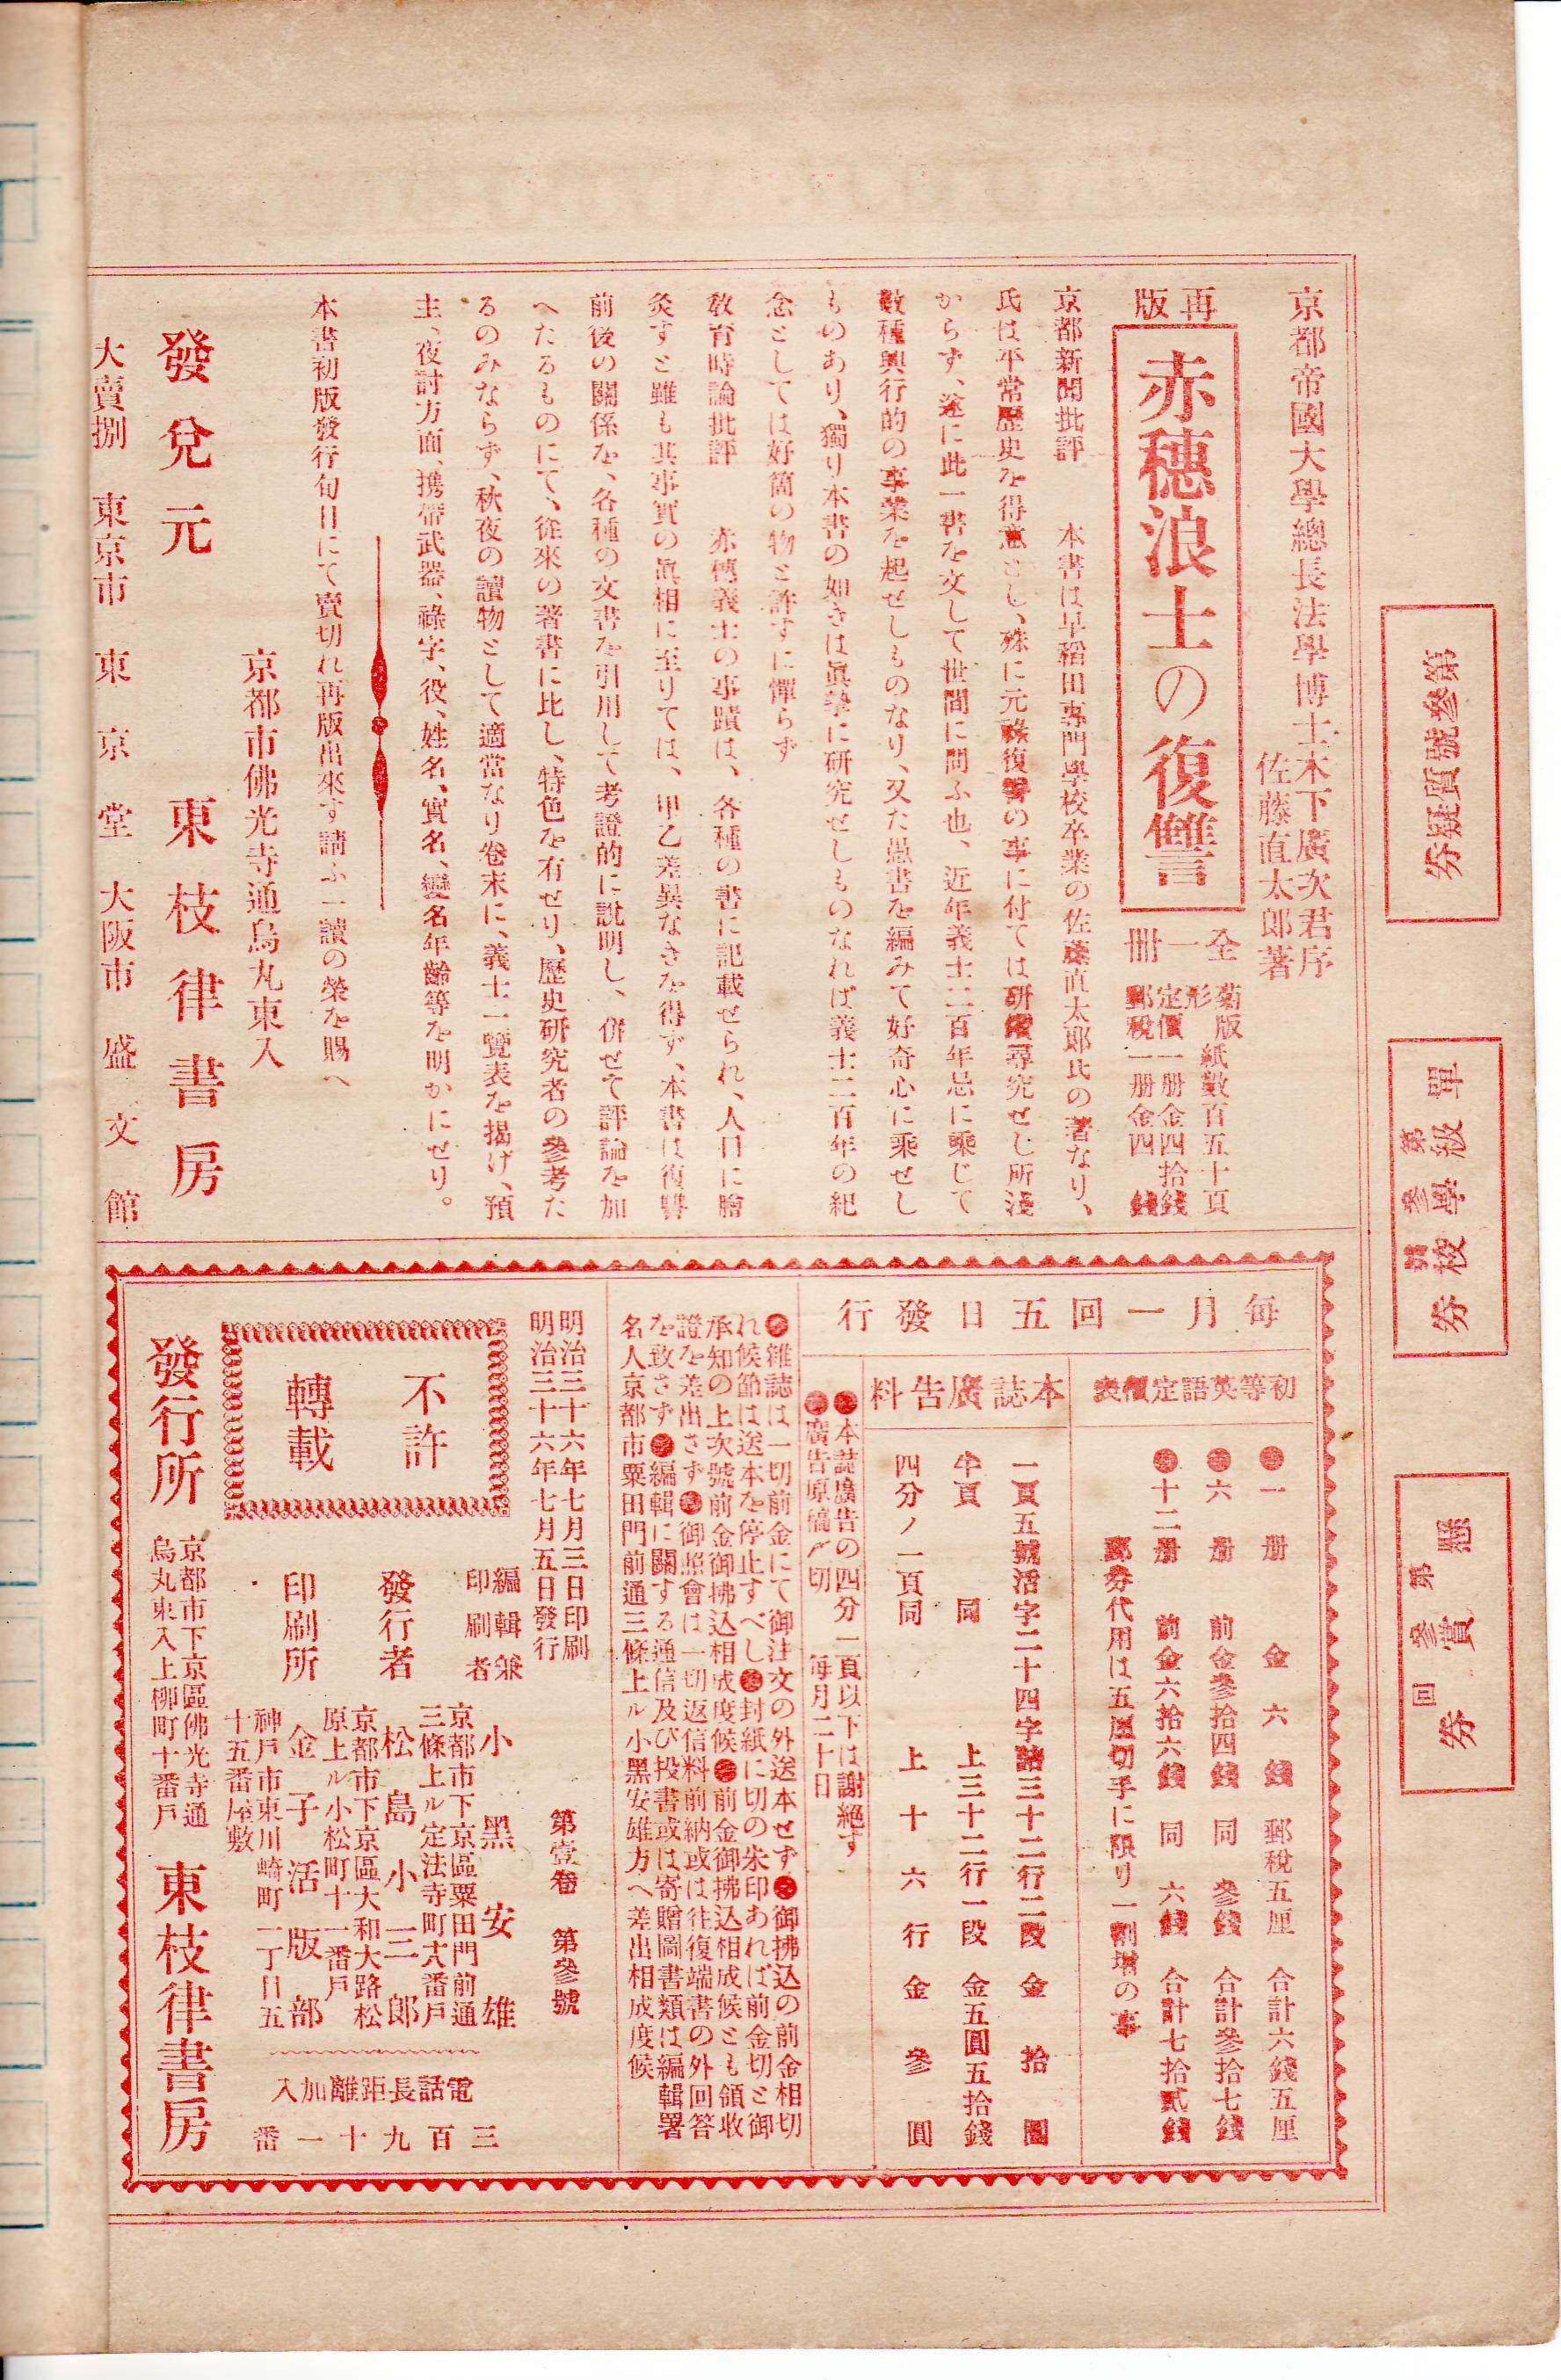 第參號質疑券
單級學校券
第參號
懸賞券
第參回
京都帝國大學總長法學博士木下廣次君序
佐藤直太郎著
再版
赤穗浪士の復讐
全一冊
菊版形 紙數百五十頁
定價一册金四拾錢
郵稅一册金四錢
京都新聞批評 本書は早稻田專門學校卒業の佐藤直太郎氏の著なり、
氏は平常歷史を得意とし、殊に元祿復讐の事に付ては研鑽尋究せし所淺
からず、遂に此一書を文して世間に問ふ也、近年義士二百年忌に乘じて
數種興行的の事業を起せしものなり、又た愚書を編みて好奇心に乘せし
ものあり、獨り本書の如きは眞摯に研究せしものなれば義士二百年の紀
念としては好箇の物と許すに憚らず
敎育時論批評 赤穗義士の事蹟は、各種の書に記載せられ、人口に膾
炙すと雖も其事實の眞相に至りては、甲乙差異なきを得ず、本書は復讐
前後の關係を、各種の文書を引用して考證的に說明し、併せて評論を加
へたるものにて、從來の著書に比し、特色を有せり、歷史硏究者の參考た
るのみならず、秋夜の讀物として適當なり卷末に、義士一覽表を揭げ、預
主、夜討方面、携帶武器、祿字、役、姓名、實名、變名年齡等を明かにせり。
本書初版發行旬日にて賣切れ再版出來す請ふ一讀の榮を賜へ
京都市佛光寺通烏丸東入
發兌元 東枝律書房
大賣捌 東京市 東京堂 大阪市 盛文館
每月一回五日發行
初等英語定價表
●一册 金六錢 郵稅五厘 合計六錢五厘
●六册 前金參拾四錢 同參錢 合計參拾七錢
●十二册 前金六拾六錢 同六錢 合計七拾貳錢
郵券代用は五厘切手に限り一割增の事
本誌廣告料
一頁五號活字二十四字詰三十二行二段 金拾圓
半頁 同 上三十二行一段 金五圓五拾錢
四分ノ一頁同 上十六行金參圓
●本誌廣告の四分一頁以下は謝絕す
●廣告原稿〆切 每月二十日
●雜誌は一切前金にて御注文の外送本せず●御拂込の前金相切
れ候節は送本を停止すべし●封紙に切の朱印あれば前金切と御
承知の上次號前金御拂込相成度候●前金御拂込相成候とも領收
證を差出さず●御照會は一切返信料前納或は往復端書の外回答
を致さず●編輯に關する通信及び投書或は寄贈圖書類は編輯署
名人京都市粟田門前通三條上ル小黑安雄方へ差出相成度候
明治三十六年七月三日印刷
明治三十六年七月五日發行
第壹卷 第參號
不許
轉載
編輯兼
印刷者
小黑安雄
京都市下京區粟田門前通
三條上ル定法寺町六番戶
發行者
松島小三郞
京都市下京區大和大路松
原上ル小松町十一番戶
印刷所
金子活版部
神戶市東川崎町一丁目五
十五番屋敷
電話長距離加入
三百九十一番
發行所
京都市下京區佛光寺通
烏丸東入上柳町十番戶
東枝律書房